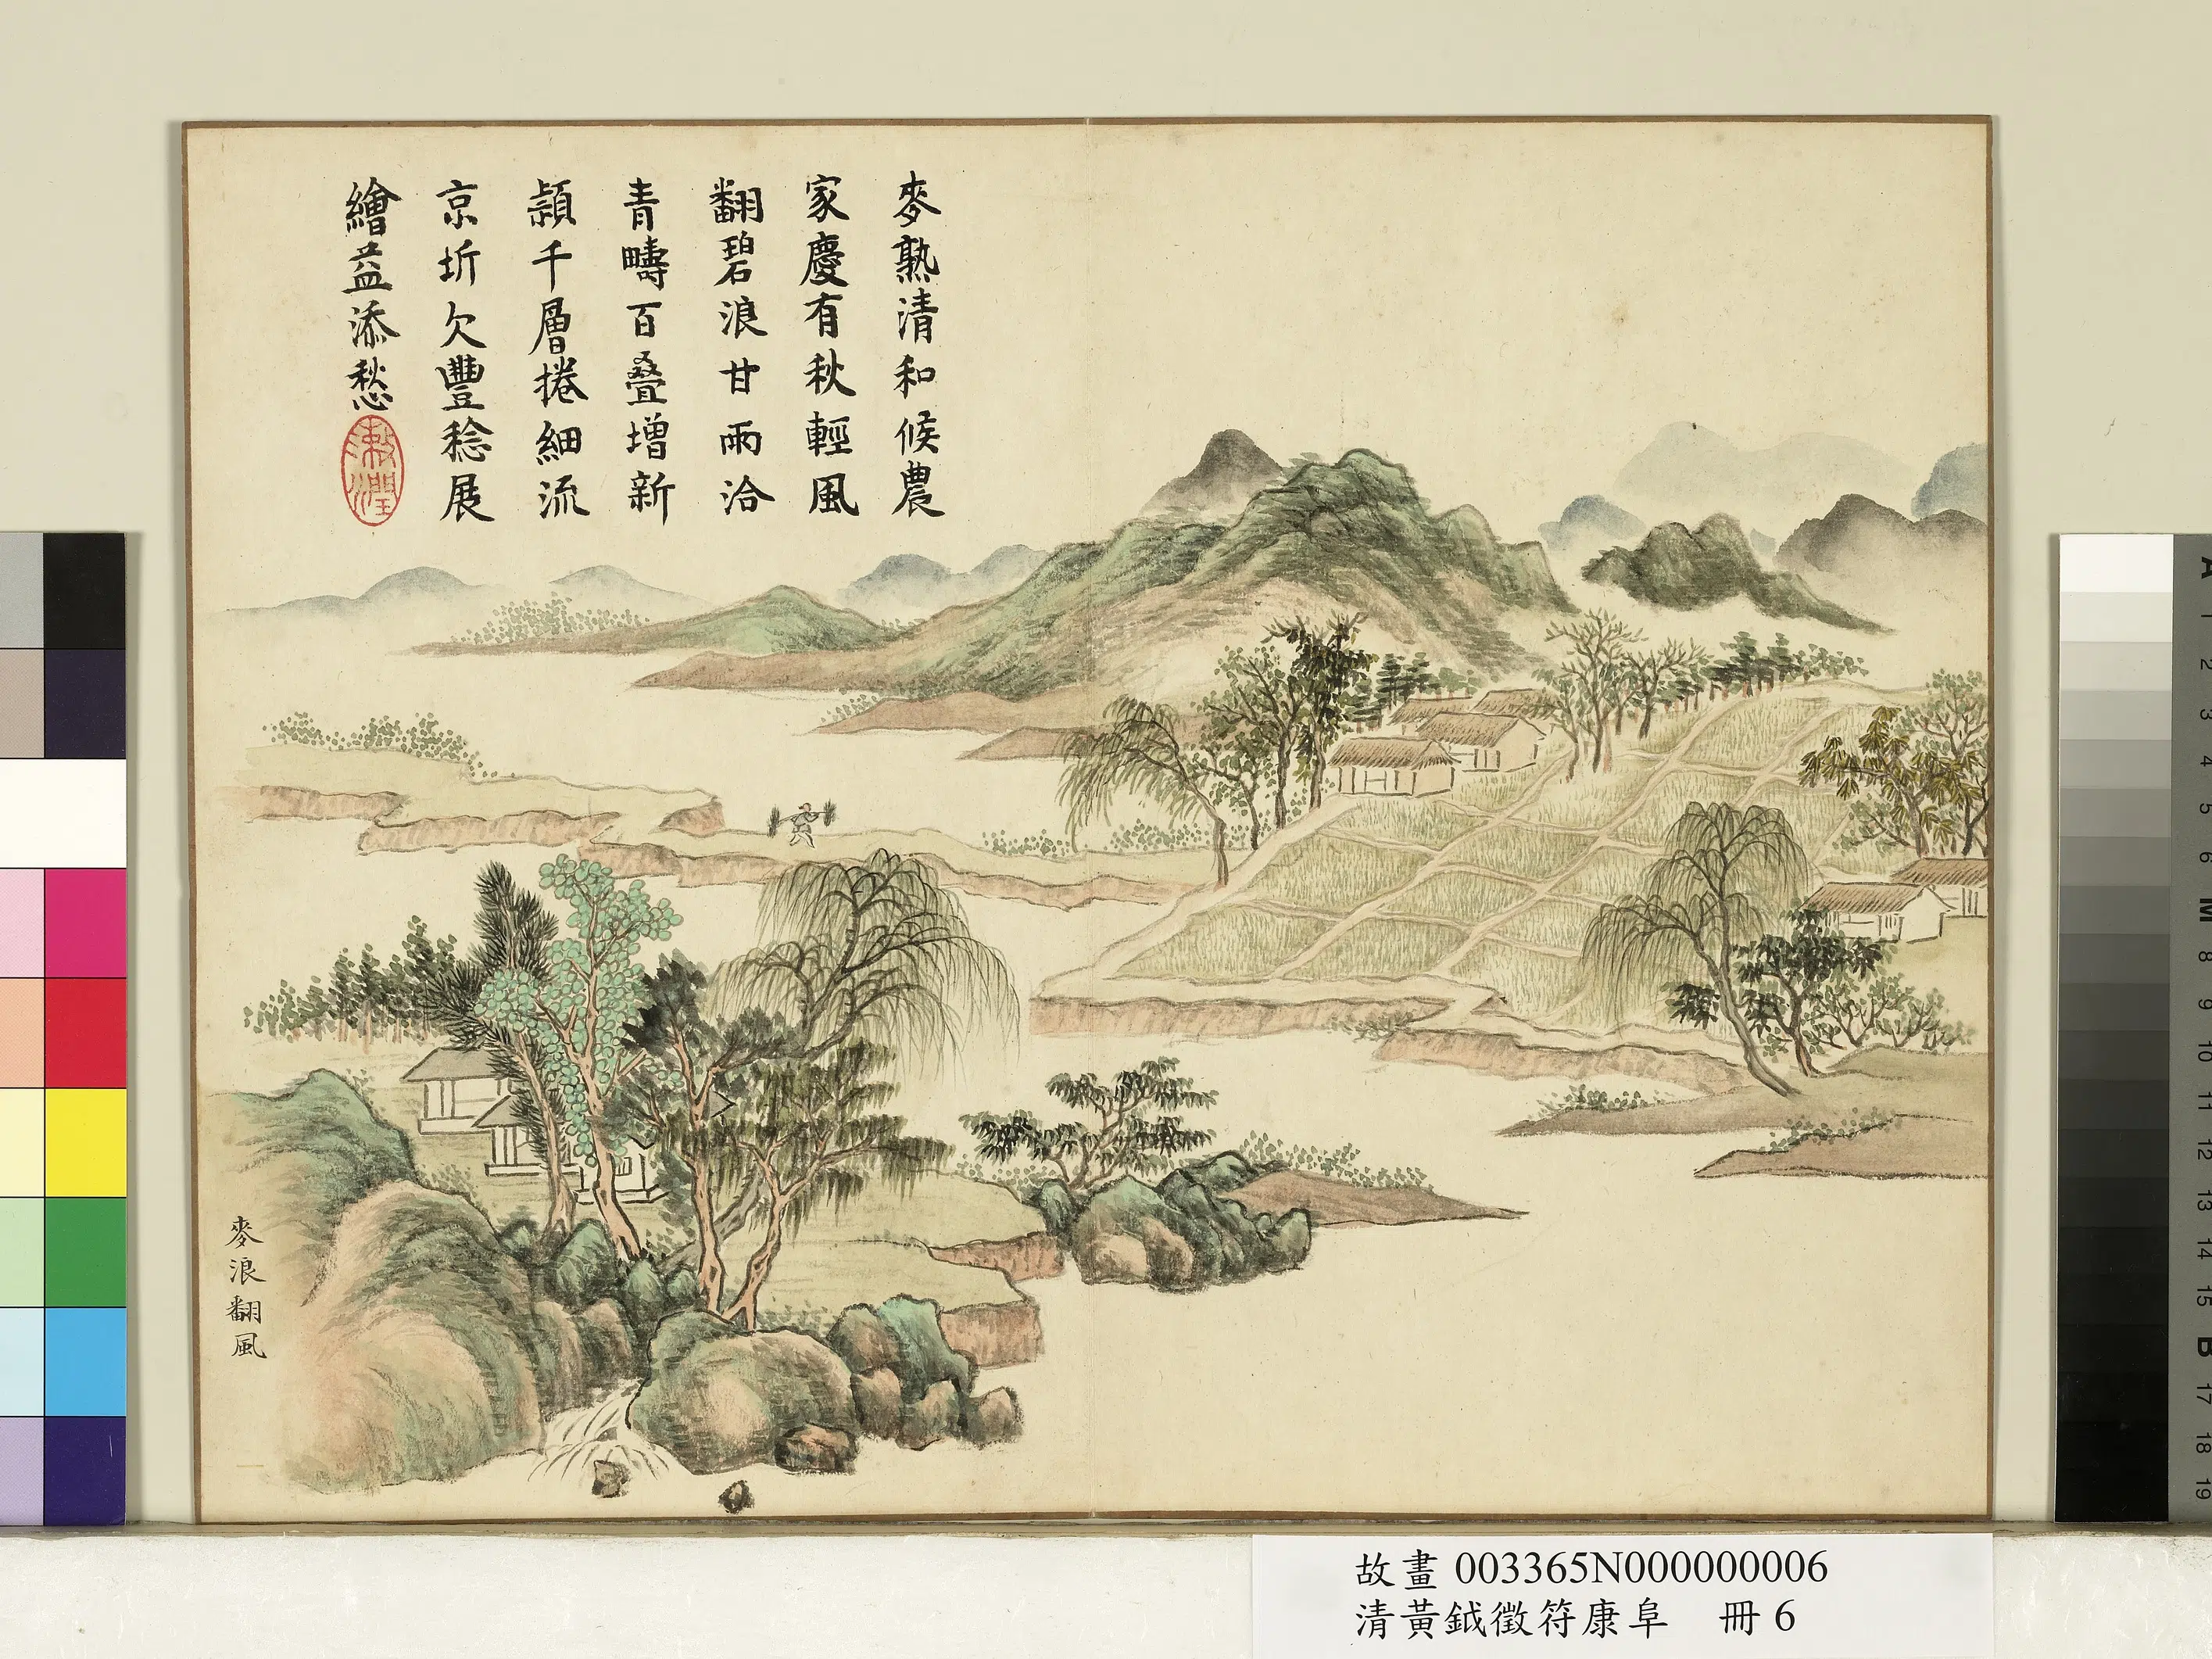 麥熟清和候農
家慶有秋輕風
翻碧浪甘雨洽
青疇百疊增新
穎千層捲細流
京圻欠豐稔展
繪益添愁
麥浪翻風
故畫 003365N000000006
清黃鉞徵符康阜 冊 6
A
1
2
3
4
5
6
M
8
9
10
11
12
13
14
15
B
17
18
19